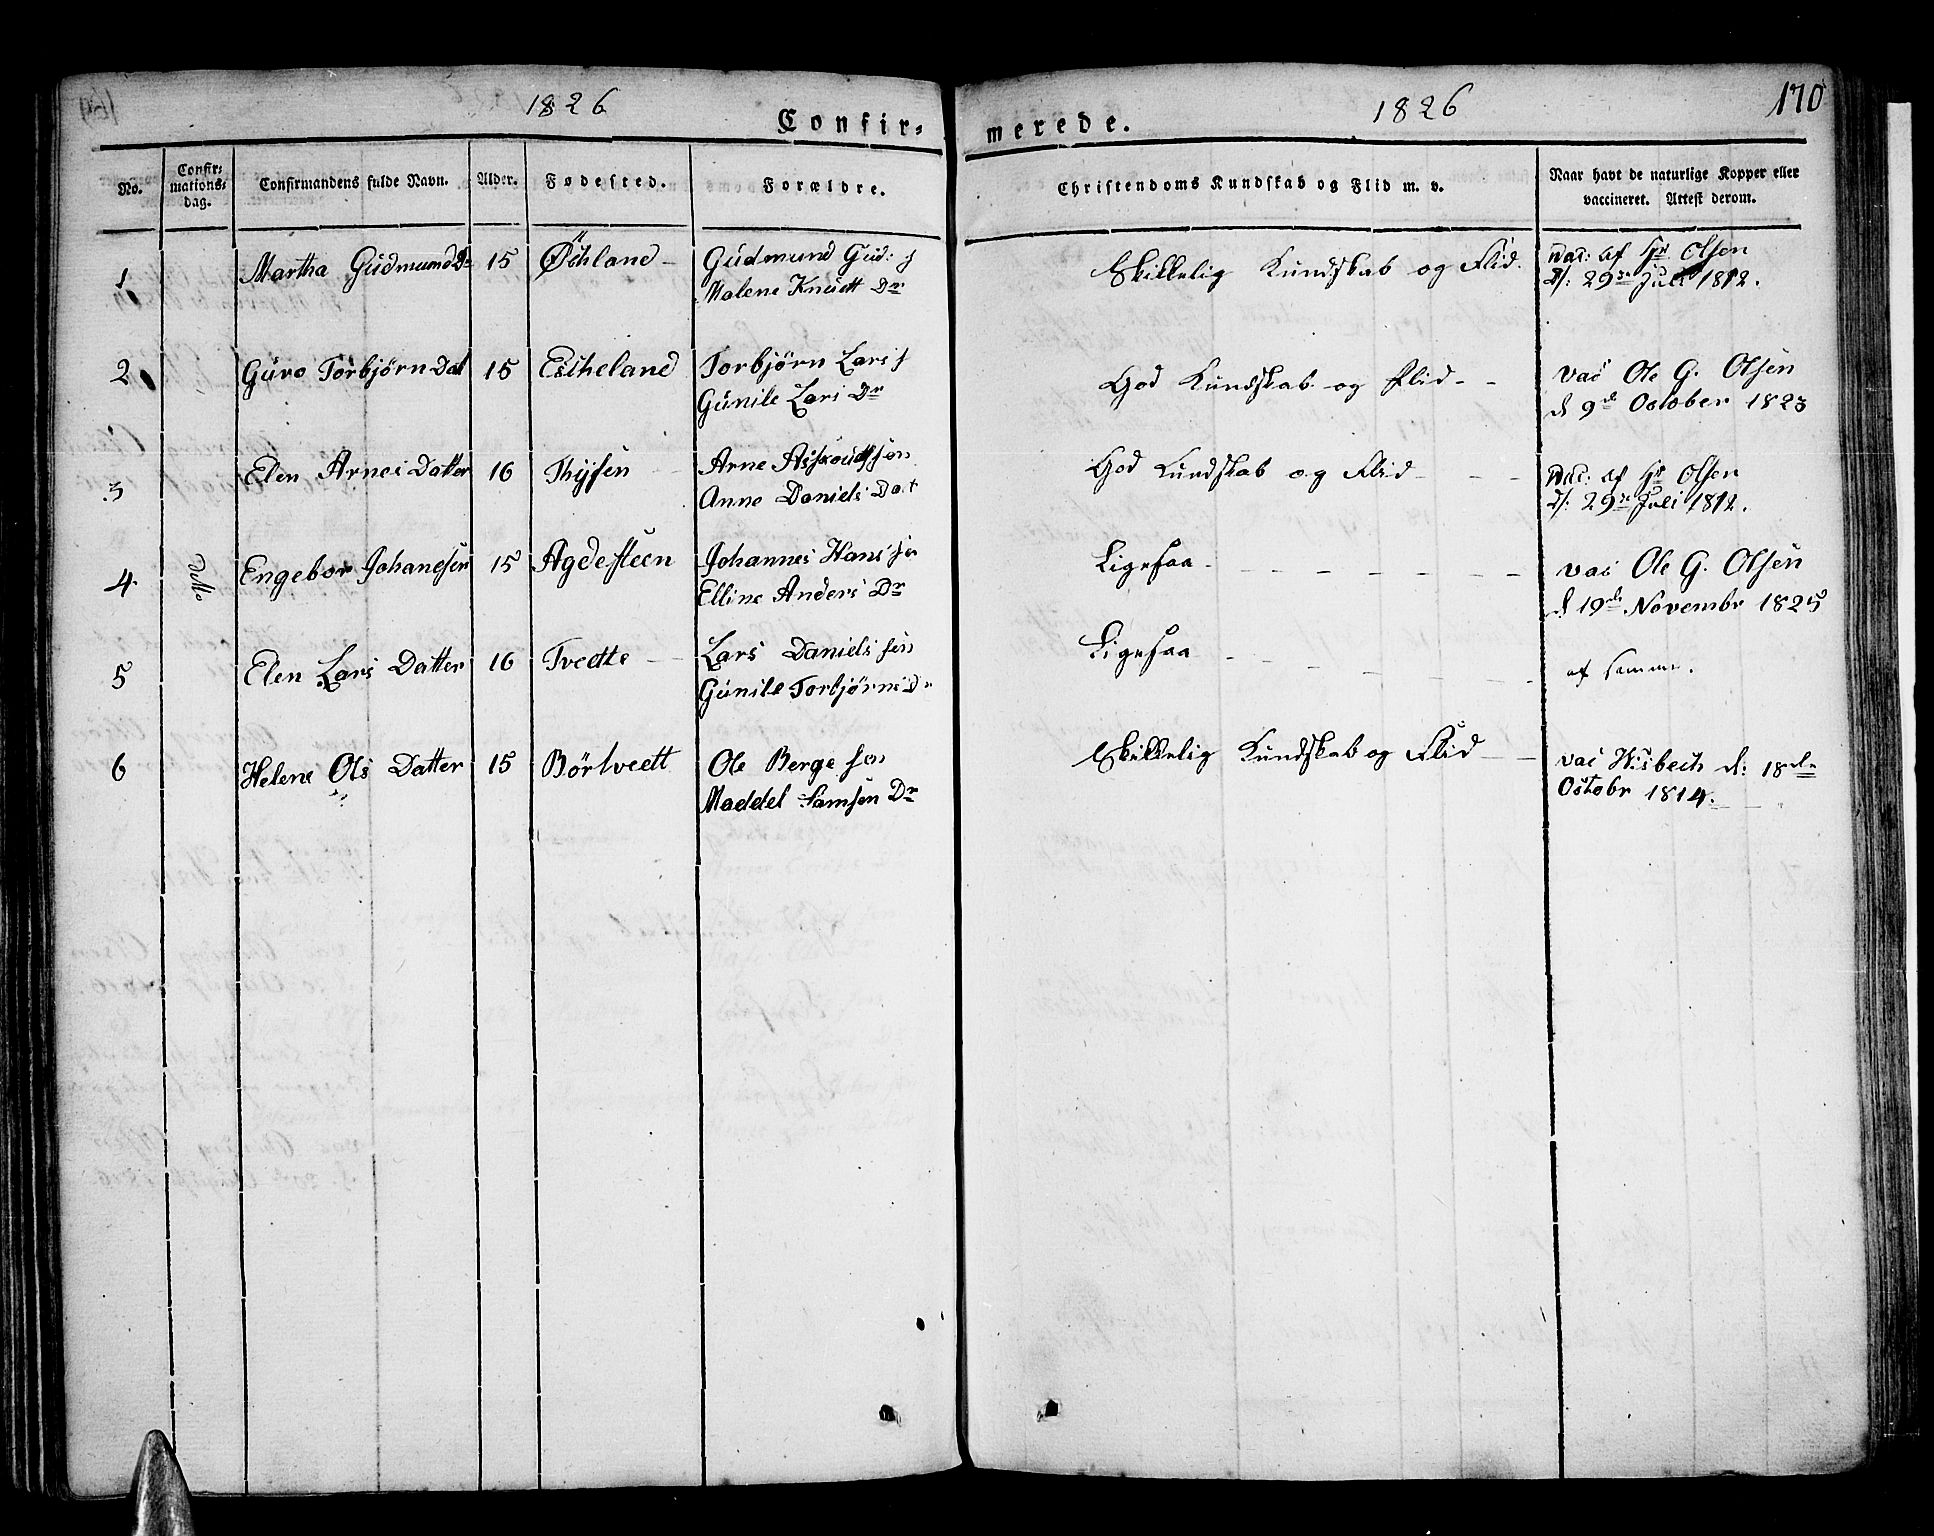 1826
Confir-
merede.
1826
170
No.
Confir-
mations-
dag.
Confirmandens fulde Navn.
Alder.
Fødested.
Forældre.
Christendoms Kundskab og Flid m. v.
Naar havt de naturlige Kopper eller
vaccineret. Attest derom.
1 Martha Gudmunds Dr 15 Øchland Gudmund Gud: s Skikkelig Kundskab og Flid. vac: af Hr Olsen
Malene Knudt Dr d: 29de Juli 1812.
2 Guro Torbjørn Dat 15 Escheland Torbjörn Lars s God Kundskab og Flid vac Ole G. Olsen
Gunile Lars Dr d 9de October 1823
3 Elen Arnes Datter 16 Thysen Arne sen God Kundskab og Flid vac: af Hr Olsen
Anne Daniels Dat d: 29de Juli 1812.
4 Engebor Johanesen 15 Agdesteen Johannes Hans sen Ligesaa vac Ole G. Olsen
Elline Anders Dr d 19de Novembr 1825
5 Elen Lars Datter 16 Tveette Lars Daniels sen Ligesaa af samme.
Gunile Torbjørns Dr
6 Helene Ols Datter 15 Börtveett Ole Berge sen Skikkelig Kundskab og Flid vac Wisbech d: 18de
Maddel Samsen Dr Octobr 1814.